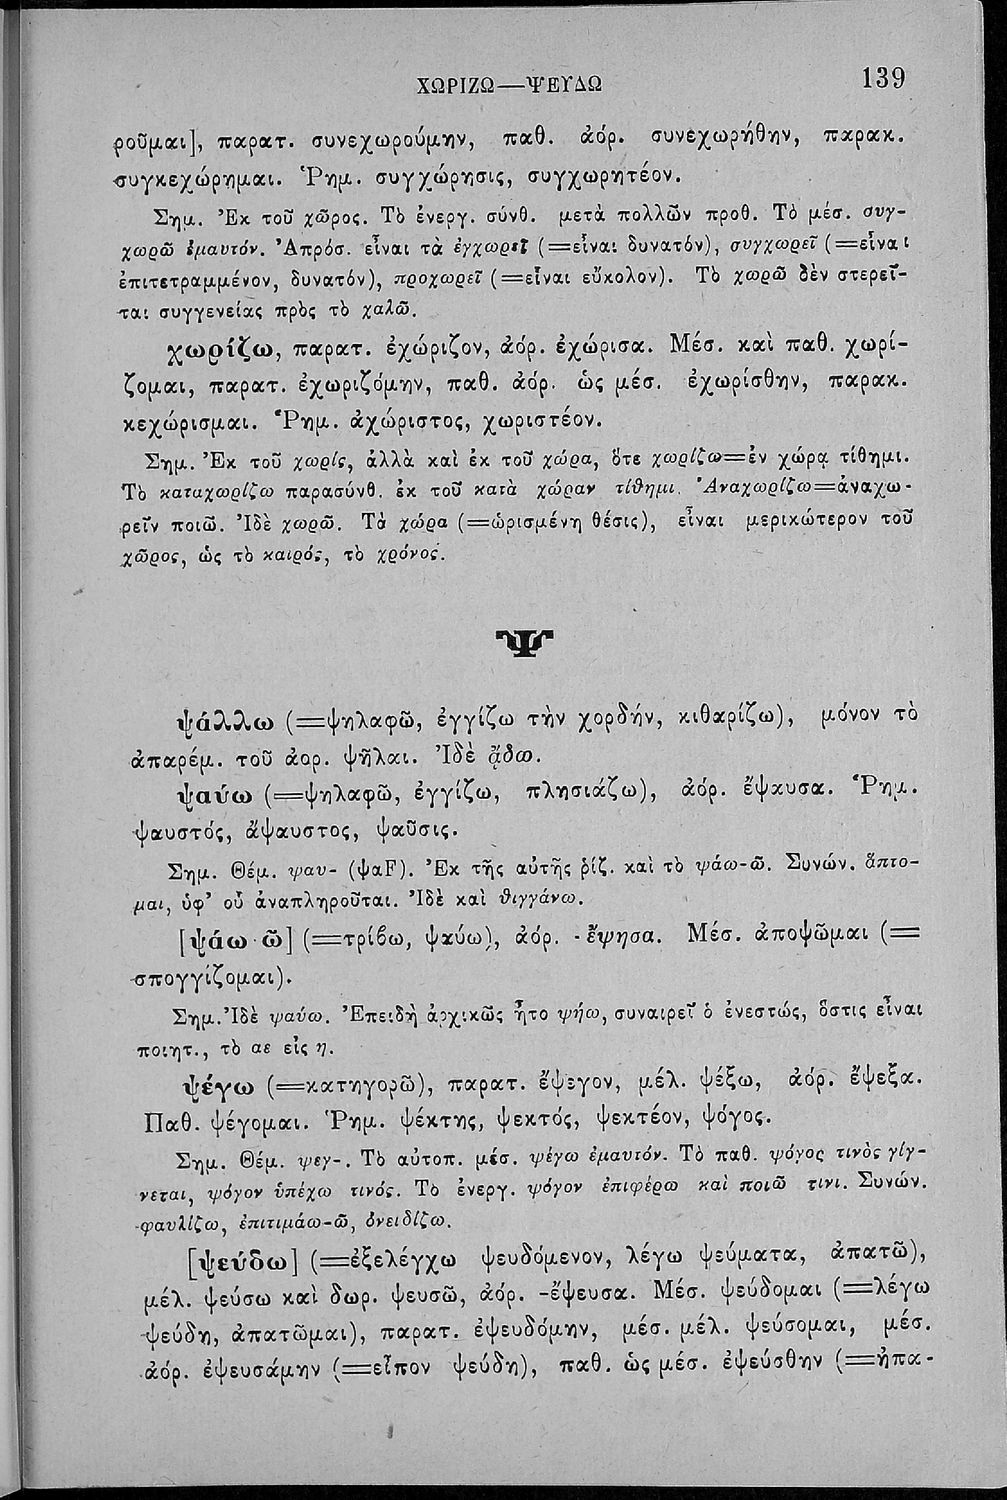 ΧΩΡΙΖΩ—ΨΕΥΔΩ 139
ροῦμαι], παρατ. συνεχωρούμην, παθ. ἀόρ. συνεχωρήθην, παρακ.
συγκεχώρημαι. Ῥημ. συγχώρησις, συγχωρητέον.
Σημ. Ἐκ τοῦ χῶρος. Τὸ ἐνεργ. σύνθ. μετὰ πολλῶν προθ. Τὸ μέσ. συγ-
χωρῶ ἐμαυτόν. Ἀπρόσ. εἶναι τὰ ἐγχωρεῖ (=εἶναι δυνατόν), συγχωρεῖ (=εἶναι
ἐπιτετραμμένον, δυνατόν), προχωρεῖ (=εἶναι εὔκολον). Τὸ χωρῶ δὲν στερεῖ-
ται συγγενείας πρὸς τὸ χαλῶ.
χωρίζω, παρατ. ἐχώριζον, ἀόρ. ἐχώρισα. Μέσ. καὶ παθ. χωρί-
ζομαι, παρατ. ἐχωριζόμην, παθ. ἀόρ. ὡς μέσ. ἐχωρίσθην, παρακ.
κεχώρισμαι. Ῥημ. ἀχώριστος, χωριστέον.
Σημ. Ἐκ τοῦ χωρίς, ἀλλὰ καὶ ἐκ τοῦ χώρα, ὅτε χωρίζω=ἐν χώρᾳ τίθημι.
Τὸ καταχωρίζω παρασύνθ. ἐκ τοῦ κατὰ χώραν τίθημι. Ἀναχωρίζω=ἀναχω-
ρεῖν ποιῶ. Ἰδὲ χωρῶ. Τὰ χώρα (=ὡρισμένη θέσις), εἶναι μερικώτερον τοῦ
χῶρος, ὡς τὸ καιρός, τὸ χρόνος.
Ψ
ψάλλω (=ψηλαφῶ, ἐγγίζω τὴν χορδήν, κιθαρίζω), μόνον τὸ
ἀπαρέμ. τοῦ ἀορ. ψῆλαι. Ἰδὲ ᾄδω.
ψαύω (=ψηλαφῶ, ἐγγίζω, πλησιάζω), ἀόρ. ἔψαυσα. Ῥημ.
ψαυστός, ἄψαυστος, ψαῦσις.
Σημ. Θέμ. ψαυ- (ψαF). Ἐκ τῆς αὐτῆς ῥίζ. καὶ τὸ ψάω-ῶ. Συνών. ἅπτο-
μαι, ὑφ’ οὗ ἀναπληροῦται. Ἰδὲ καὶ θιγγάνω.
[ψάω-ῶ] (=τρίβω, ψαύω), ἀόρ. -ἔψησα. Μέσ. ἀποψῶμαι (=
σπογγίζομαι).
Σημ. Ἰδὲ ψαύω. Ἐπειδὴ ἀρχικῶς ἦτο ψήω, συναιρεῖ ὁ ἐνεστώς, ὅστις εἶναι
ποιητ., τὸ αε εἰς η.
ψέγω (=κατηγορῶ), παρατ. ἔψεγον, μέλ. ψέξω, ἀόρ. ἔψεξα.
Παθ. ψέγομαι. Ῥημ. ψέκτης, ψεκτός, ψεκτέον, ψόγος.
Σημ. Θέμ. ψεγ-. Τὸ αὐτοπ. μέσ. ψέγω ἐμαυτόν. Τὸ παθ. ψόγος τινὸς γίγ-
νεται, ψόγον ὑπέχω τινός. Τὸ ἐνεργ. ψόγον ἐπιφέρω καὶ ποιῶ τινι. Συνών.
φαυλίζω, ἐπιτιμάω-ῶ, ὀνειδίζω.
[ψεύδω] (=ἐξελέγχω ψευδόμενον, λέγω ψεύματα, ἀπατῶ),
μέλ. ψεύσω καὶ δωρ. ψευσῶ, ἀόρ. -ἔψευσα. Μέσ. ψεύδομαι (=λέγω
ψεύδη, ἀπατῶμαι), παρατ. ἐψευδόμην, μέσ. μέλ. ψεύσομαι, μέσ.
ἀόρ. ἐψευσάμην (=εἶπον ψεύδη), παθ. ὡς μέσ. ἐψεύσθην (=ἠπα-